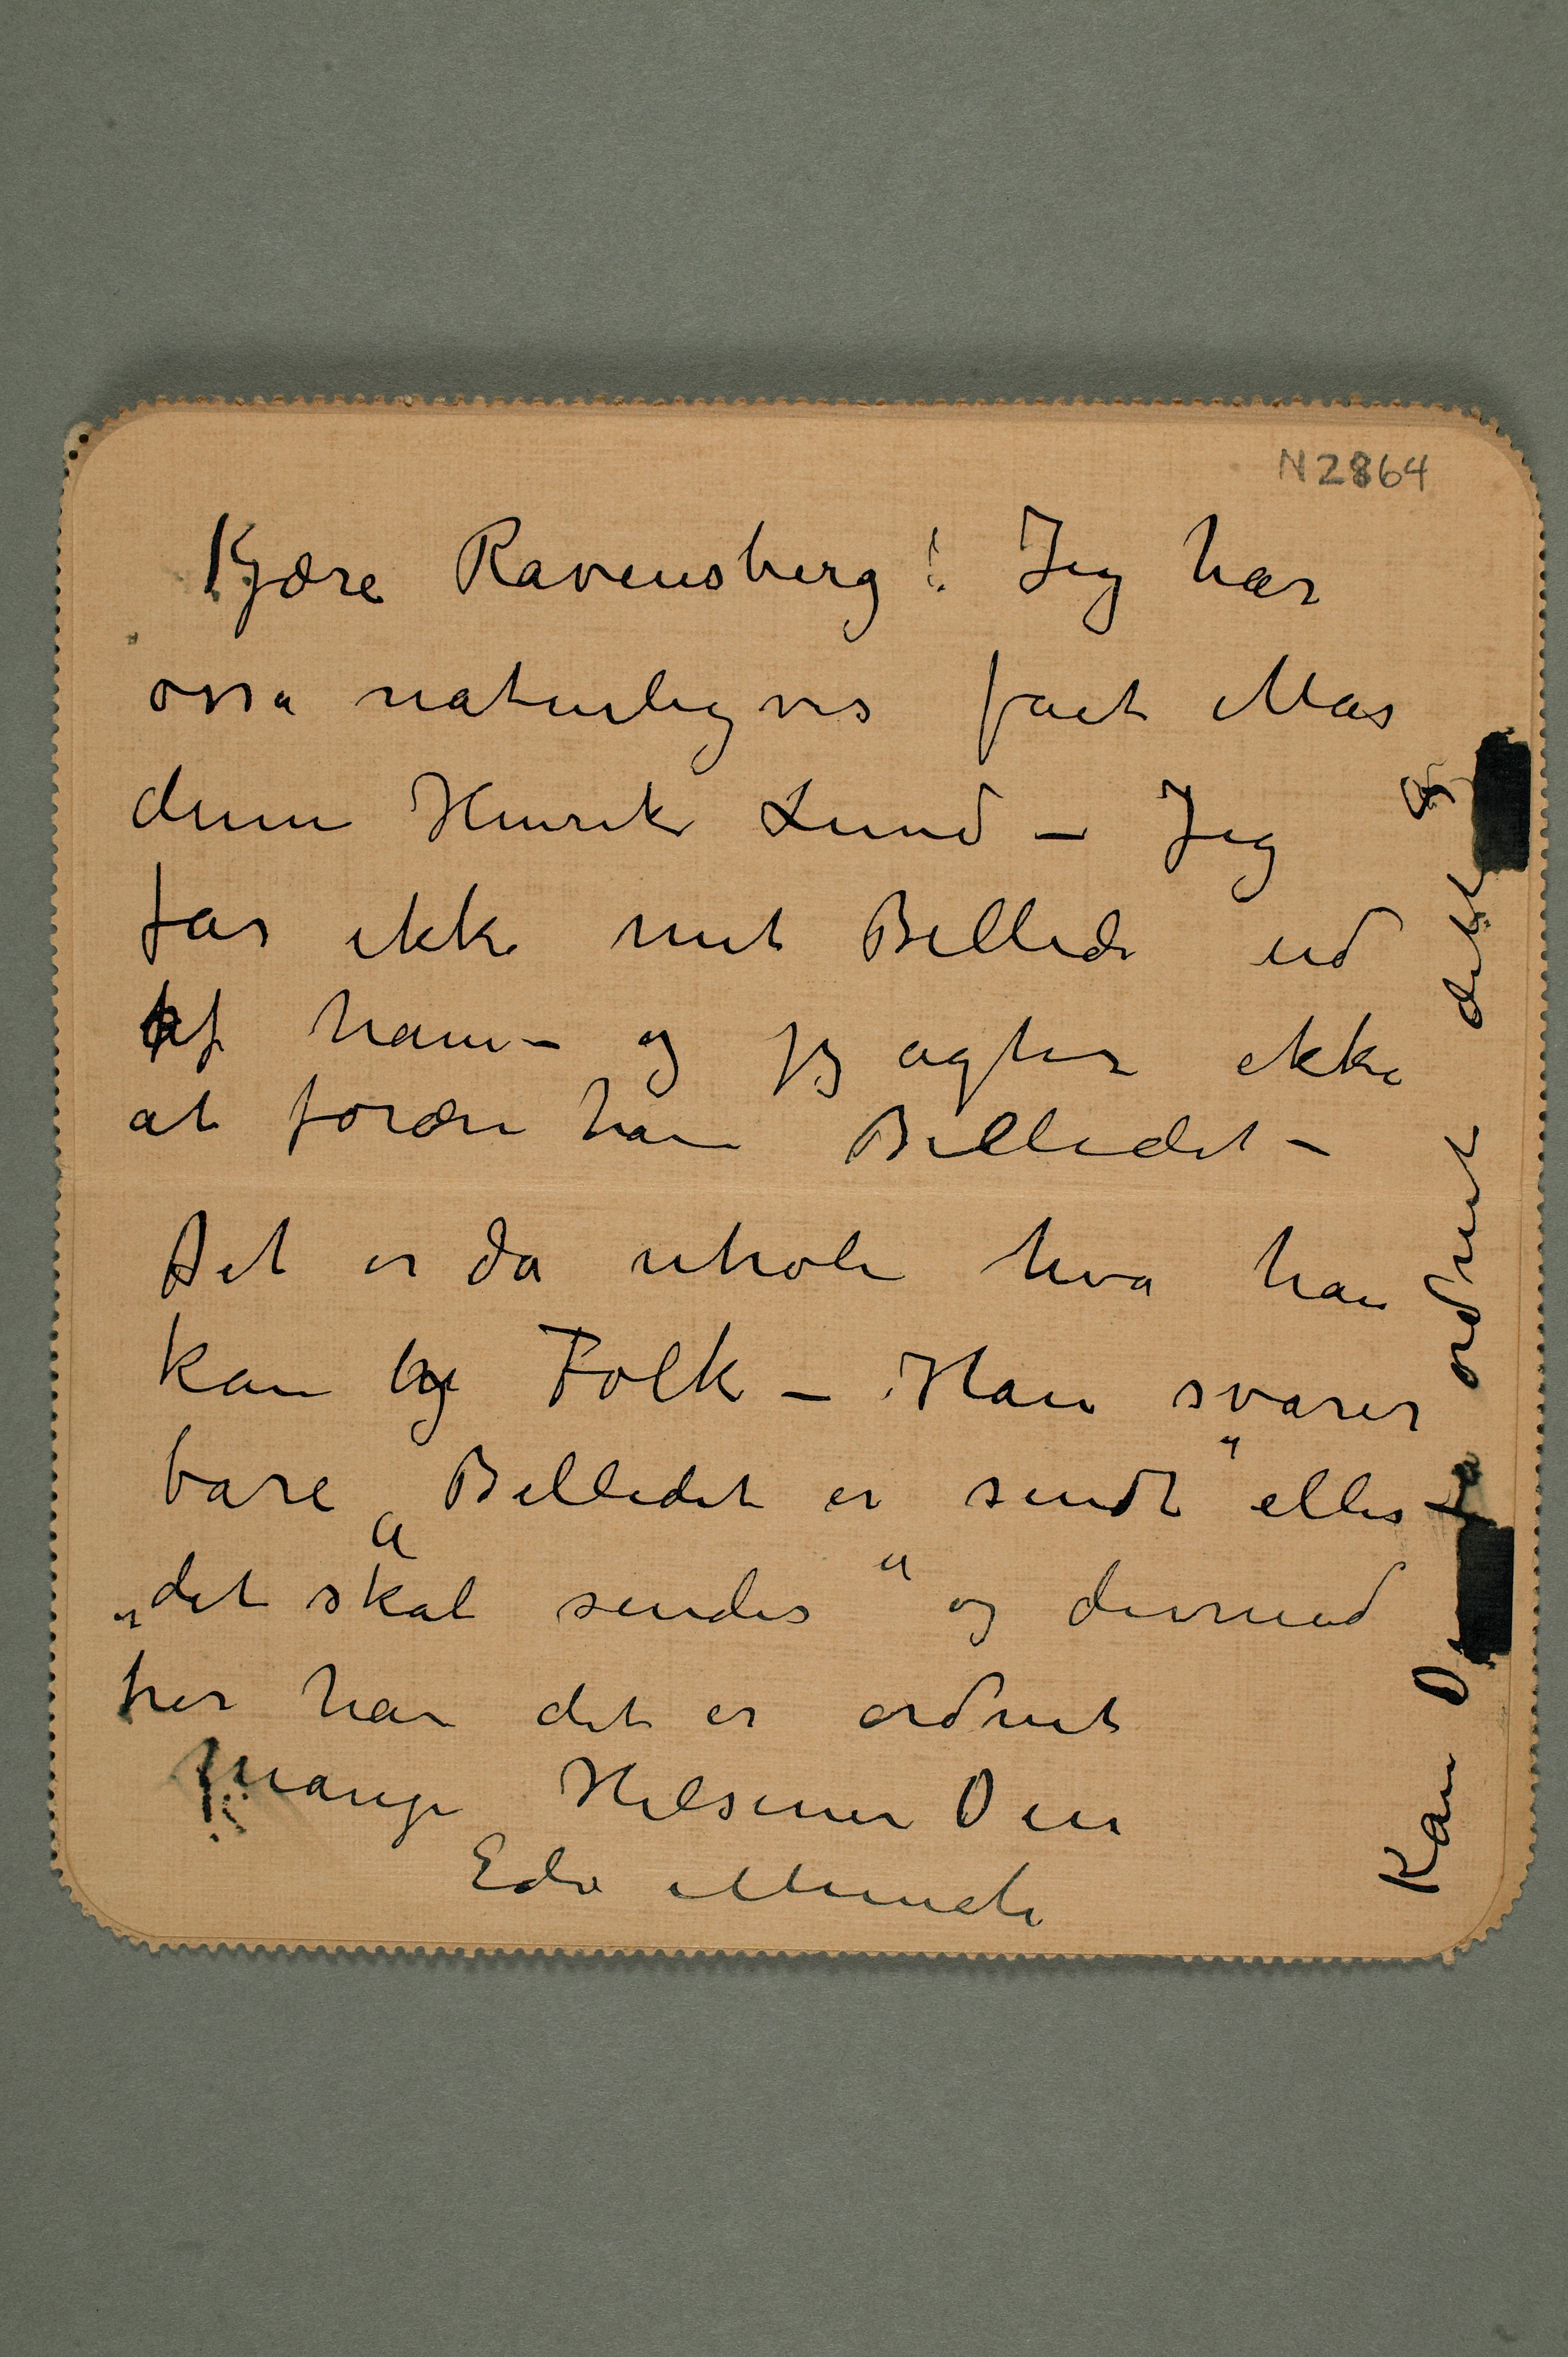 N 2864
Kjære Ravensberg! Jeg har
ossa naturligvis faet Mas
denne Henrik Lund – Jeg
far ikke mit Billede ud
af ham – og jeg agter ikke
at forære ham Billedet –
Det er da utrolig hva han
kan by Folk – Han svarer
bare „Billedet er sendt" eller
„det skal sendes" og dermed
tror han det er ordnet
Mange Hilsener Deres
Edv Munch
Kan De fa ordnet dette